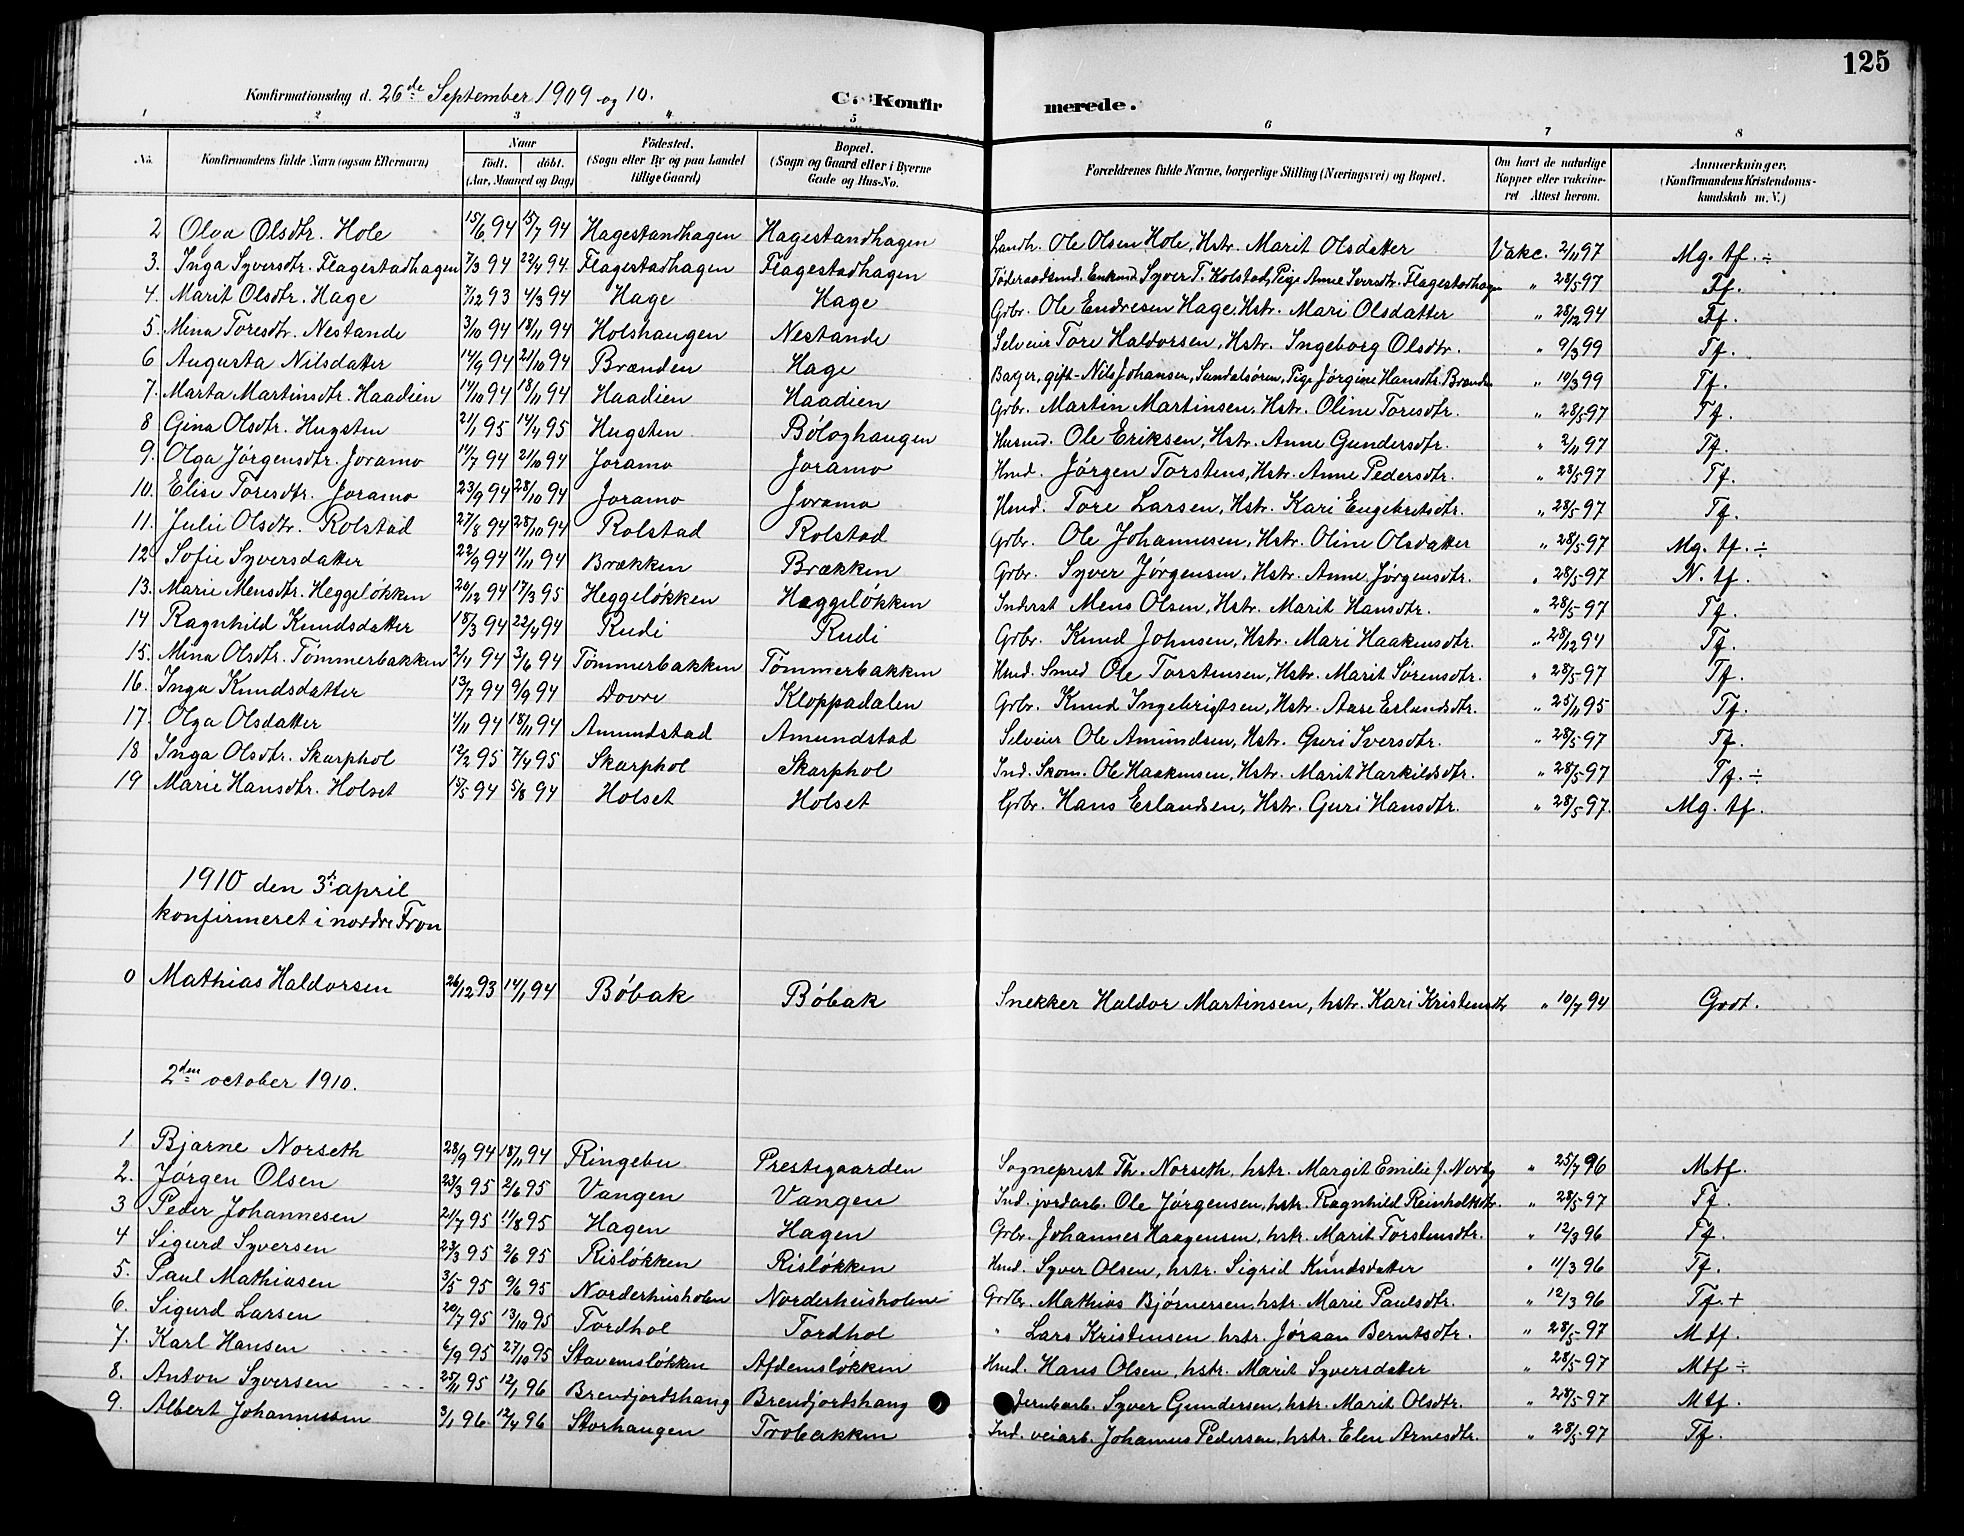 125
Konfirmationsdag d. 26de September 1909 og 10. C. Konfir merede.
1 2 3 4 5 6 7 8
No. Konfirmandens fulde Navn (ogsaa Efternavn) Naar födt. döbt. (Aar, Maaned og Dag) Födested. (Sogn eller By og paa Landet tillige Gaard) Bopæl. (Sogn og Gaard eller i Byerne Gade og Hus-No. Forældrenes fulde Navne, borgerlige Stilling (Næringsvei) og Bopæl. Om havt de naturlige Kopper eller vakcineret Attest herom. Anmærkninger, (Konfirmandens Kristendomskundskab m. V.)
2 Olga Olsdtr. Hole 15/6 94 15/7 94 Hagestandhagen Hagestandhagen Landh. Ole Olsen Hole, Hstr. Marit Olsdatter Vakc. 2/11 97 Mg. tf. ÷
3. Inga Syversdtr. Flagestadhagen 7/3 94 22/4 94 Flagestadhagen Flagestadhagen Föderaadsmd. Enkmd. Syver T. Kolstad, Pige Anne Iversdtr. Flagestadhagen " 28/5 97 Tf.
4. Marit Olsdtr. Hage 7/12 93 4/3 94 Hage Hage Grbr. Ole Endresen Hage, Hstr. Mari Olsdatter " 28/12 94 Tf.
5. Mina Toresdtr. Nestande 3/10 94 18/11 94 Holshaugen Nestande Selveier Tore Haldorsen, Hstr. Ingeborg Olsdtr. " 9/3 99 Tf.
6 Augusta Nilsdatter 14/9 94 21/10 94 Brænden Hage Bager, gift- Nils Johansen, Sundalsøren, Pige Jørgine Hansdtr. Brænden " 10/3 99 Tf.
7. Marta Martinsdtr. Haadien 14/10 94 18/11 94 Haadien Haadien Grbr. Martin Martinsen, Hstr. Oline Toresdtr. " 28/5 97 Tf.
8 Gina Olsdtr. Hugsten 21/1 95 14/4 95 Hugsten Böloghaugen Husmd. Ole Eriksen, Hstr. Anne Gundersdtr. " 2/11 97 Tf.
9. Olga Jørgensdtr. Joramo 14/7 94 21/10 94 Joramo Joramo Hmd. Jørgen Torstens, Hstr. Anne Pedersdtr. " 28/5 97 Tf.
10. Elise Toresdtr. Joramo 23/9 94 28/10 94 Joramo Joramo Hmd. Tore Larsen, Hstr. Kari Engebretsdtr. " 28/5 97 Tf.
11. Julie Olsdtr. Rolstad 27/8 94 28/10 94 Rolstad Rolstad Grbr. Ole Johannesen, Hstr. Oline Olsdatter " 28/5 97 Mg. tf. ÷
12 Sofie Syversdatter 22/9 94 11/11 94 Brækken Brækken Grbr. Syver Jørgensen, Hstr. Anne Jørgensdtr. " 28/5 97 N. tf.
13. Marie Mensdtr. Heggeløkken 20/12 94 17/3 95 Heggeløkken Heggeløkken Inderst Mens Olsen, Hstr. Marit Hansdtr. " 28/5 97 Tf.
14 Ragnhild Knudsdatter 18/3 94 22/4 94 Rudi Rudi Grbr. Knud Johnsen, Hstr. Mari Haakensdtr. " 28/12 94 Tf.
15. Mina Olsdtr. Tömmerbakken 2/4 94 3/6 94 Tömmerbakken Tömmerbakken Hmd. Smed Ole Torstensen, Hstr. Marit Sörensdtr. " 28/5 97 Tf.
16. Inga Knudsdatter 13/7 94 9/9 94 Dovre Kloppadalen Grbr. Knud Ingebrigtsen, Hstr. Aase Erlandsdtr. " 25/11 95 Tf.
17. Olga Olsdatter 1/11 94 18/11 94 Amundstad Amundstad Selveier Ole Amundsen, Hstr. Guri Iversdtr. " 28/5 97 Tf.
18 Inga Olsdtr. Skarphol 12/2 95 7/4 95 Skarphol Skarphol Ind. Skom. Ole Haakensen, Hstr. Marit Harkildsdtr. " 28/5 97 Tf. ÷
19 Marie Hansdtr. Holset 15/5 94 5/8 94 Holset Holset Grbr. Hans Erlandsen, Hstr. Guri Hansdtr. " 28/5 97. Mg. tf.
1910 den 3die april
konfirmeret i nordre Fron
0 Mathias Haldorsen 26/12 93 14/1 94 Böbak Böbak Snekker Haldor Martinsen, hstr. Kari Kristensdtr " 10/7 94 Godt.
2den october 1910.
1 Bjarne Norseth 28/9 94 18/11 94 Ringebu Prestegaarden Sogneprest Th. Norseth, hstr. Margit Emilie f. " 25/7 96 Mtf.
2. Jørgen Olsen 23/3 95 2/6 95 Vangen Vangen Ind. jordarb. Ole Jørgensen, hstr. Ragnhild Reinholtsdtr. " 28/5 97 Tf.
3 Peder Johannesen 21/7 95 11/8 95 Hagen Hagen Grbr. Johannes Haagensen, hstr. Marit Torstensdtr. " 12/3 96 Tf.
4 Sigurd Syversen 23/3 95 2/6 95 Risløkken Risløkken Hmd. Syver Olsen, hstr. Sigrid Knudsdatter " 11/3 96 Tf.
5. Paul Mathiasen 3/5 95 9/6 95 Norderhusholen Norderhusholen Grdbr. Mathias Bjørnersen, hstr. Marie Paulsdtr. " 12/3 96 Tf. +
6. Sigurd Larsen 20/7 95 13/10 95 Tordhol Tordhol " Lars Kristensen hstr. Jøraan Berntsdtr. " 28/5 97 M tf.
7. Karl Hansen 6/9 95 27/10 95 Stavemsløkken Afdemsløkken Hmd. Hans Olsen, hstr. Marit Syversdatter " 28/5 97 Mtf ÷
8. Anton Syversen 25/11 95 12/1 96 Brendjordshaug Brendjordshaug Jernbarb. Syver Gundersen, hstr. Marit Olsdtr. " 28/5 97 Mtf.
9. Albert Johannessen 3/1 96 12/4 96 Storhaugen Trobakken Ind. veiarb. Johannes Pedersen, hstr. Elen Arnesdtr. " 28/5 97 Tf.